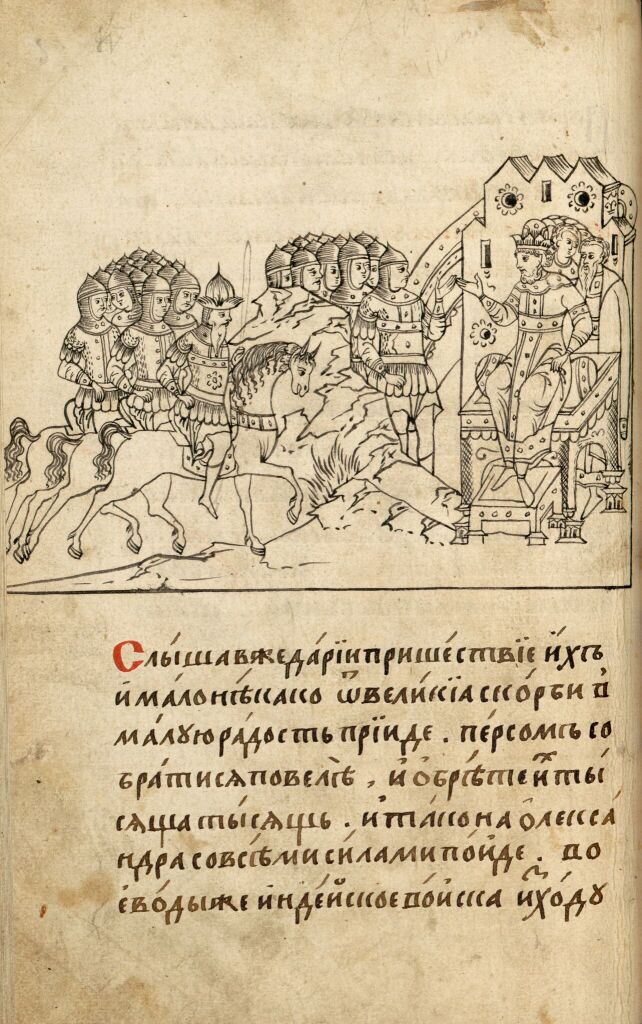 Слы́шавжедарїипришествїе и́хъ
и́малонѣкако ѿвеликїаско́рби в
ма́луюра́дость прїи́де . пе́рсомъ со
братисѧповелѣ , и́ѻбрѣте и҆хъ ты́
сѧща ты́сѧщь . и҆та́ко на ѻ҆лекса́
ндра со всѣ́ми си́лами по́йде . во
ево́ды же и҆нде́йское во́йска и҆схо́дѹ